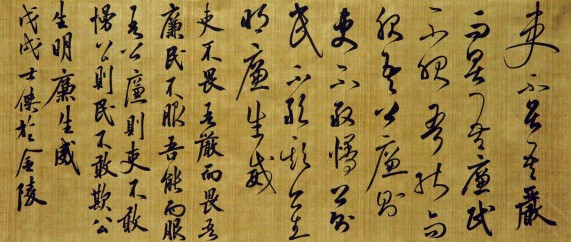 吏不畏吾嚴
而畏吾廉民
不服吾能而
服吾公廉則
吏不敢慢公則
民不敢欺公生
明廉生威
吏不畏吾嚴而畏吾
廉民不服吾能而服
吾公廉則吏不敢
慢公則民不敢欺公
生明廉生威
戊戌士於金陵